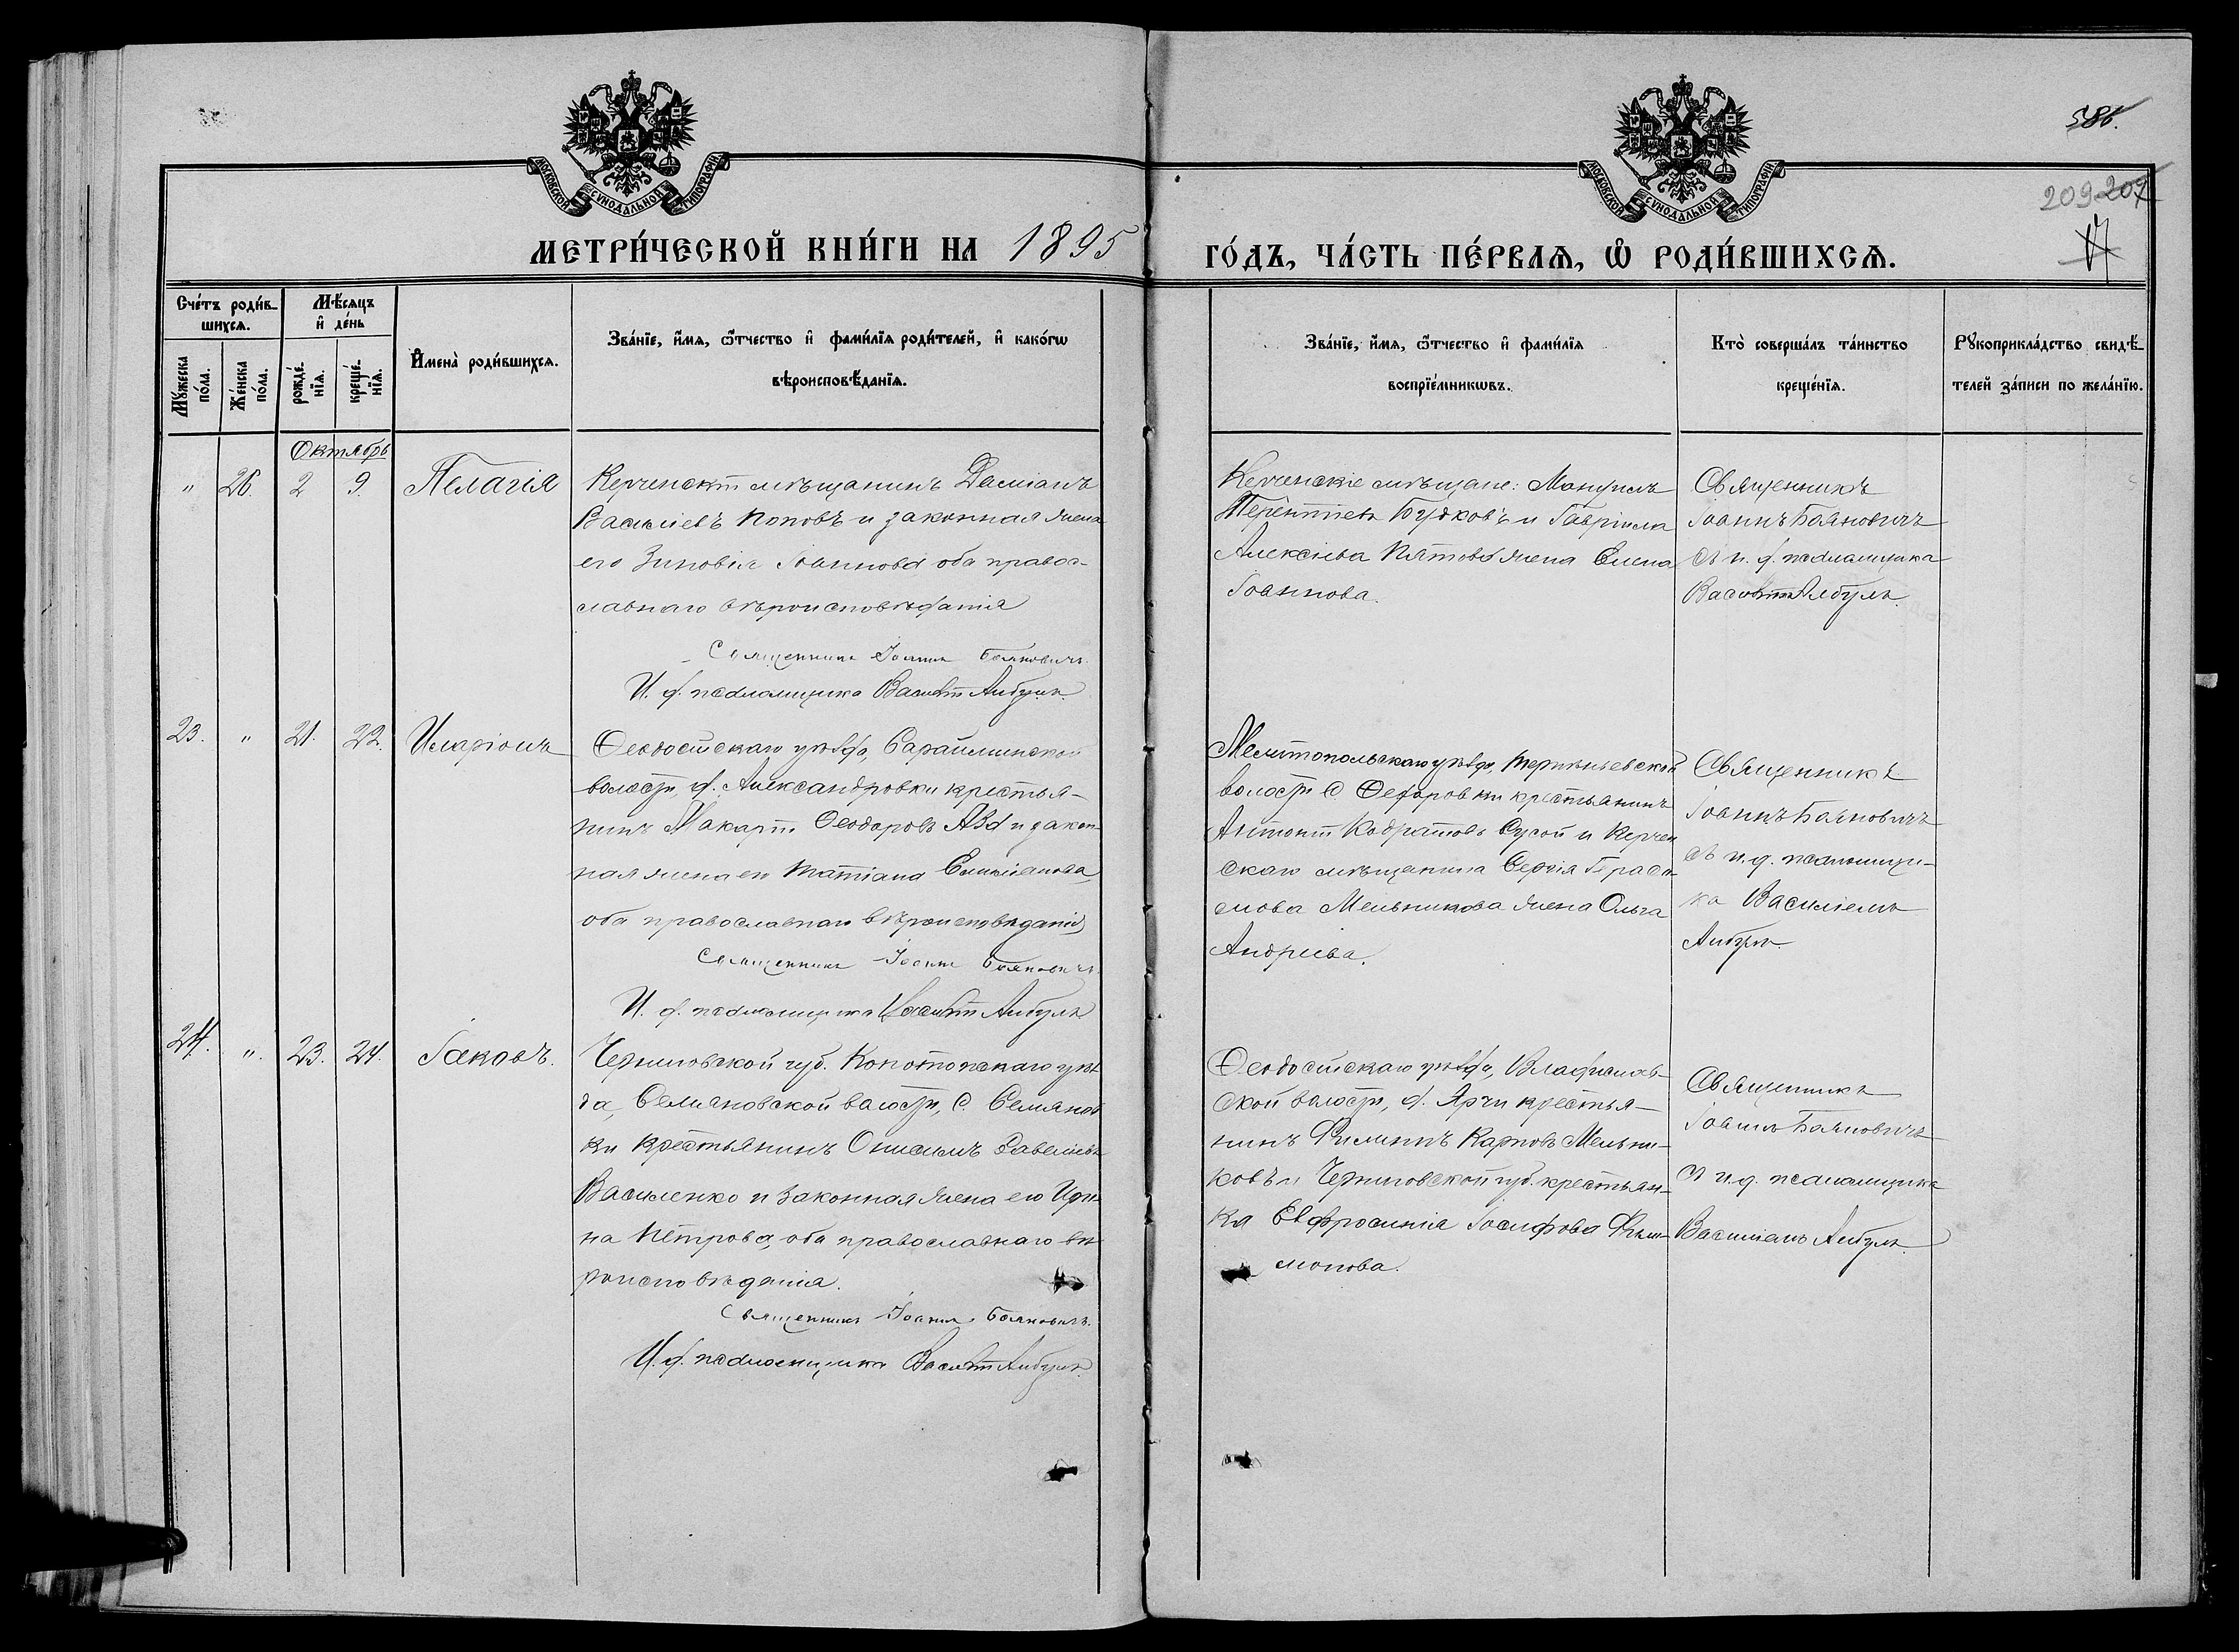 586.
МОСКОВСКОЙ СѴНОДАЛЬНОЙ ТИПОГРАФІИ
МОСКОВСКОЙ СѴНОДАЛЬНОЙ ТИПОГРАФІИ
209 207
17
МЕТРИ́ЧЕСКОЙ КНИ́ГИ НА 1895 ГО́ДЪ, ЧА́СТЬ ПЕ́РВАѦ, Ѡ҆ РОДИ́ВШИХСѦ.
Сче́тъ роди́в-
шихсѧ.
Мѣ́сѧцъ
и҆ де́нь
Мꙋ́жеска по́ла.
Же́нска по́ла.
рожде́-
нїѧ.
креще́-
нїѧ.
И҆мена̀ роди́вшихсѧ.
Зва́нїе, и҆́мѧ, ѻ҆́тчество и҆ фами́лїѧ роди́телей, и҆ како́гѡ
вѣроисповѣ́данїѧ.
Зва́нїе, и҆́мѧ, ѻ҆́тчество и҆ фами́лїѧ
воспрїе́мникѡвъ.
Кто̀ соверша́лъ та́инство
креще́нїѧ.
Рꙋкоприкла́дство свидѣ́-
телей за́писи по жела́нїю.
Октябрь
" 26. 2 9. Пелагія
Керченскій мѣщанинъ Даміанъ
Василіевъ Поповъ и законная жена
его Зиновія Іоаннова оба правос-
славнаго вѣроисповѣданія
Священникъ Іоаннъ Бояновичъ.
И. д. псаломщика Василій
Керченскіе мѣщане:
Терентіевъ Будковъ и Гавріила
Алексіева Пятова жена Елена
Іоаннова.
Священникъ
Іоаннъ Бояновичъ
съ и. д. псаломщика
23. " 21. 22. Иларіонъ
Ѳеодосійскаго уѣзда, Сарайминской
волости, д. Александровки крестья-
нинъ Макарій Ѳеодоровъ и закон-
ная жена его Татіана Емиліанова,
оба православнаго вѣроисповѣданія
Священникъ Іоаннъ Бояновичъ
И. д. псаломщика Василій
Мелитопольскаго уѣзда,
волости с. Ѳедоровки крестьянинъ
Антоній Кодратовъ Сусой и Керчен
скаго мѣщанина Сергія Гераси-
мова Мельникова жена Ольга
Андреева.
Священникъ
Іоаннъ Бояновичъ
съ и. д. псаломщи-
ка Василіемъ
24. ". 23. 24. Іаковъ.
Черниговской губ. Конотопскаго уѣз
да, Семяновской волости, с. Семянов
ки крестьянинъ Онисимъ Савеліевъ
Василенко и законная жена его Ири-
на Петрова, оба православнаго вѣ-
роисповѣданія.
Священникъ Іоаннъ Бояновичъ.
И. д. псаломщика Василій
Ѳеодосійскаго уѣзда, Владислав-
ской волости, д. Арчи крестья-
нинъ Филиппъ Карповъ Мельни-
ковъ и Черниговской губ. крестьян-
ка Евфросинія Іосифова Фили-
монова.
Священникъ
Іоаннъ Бояновичъ
съ и. д. псаломщика
Василіемъ